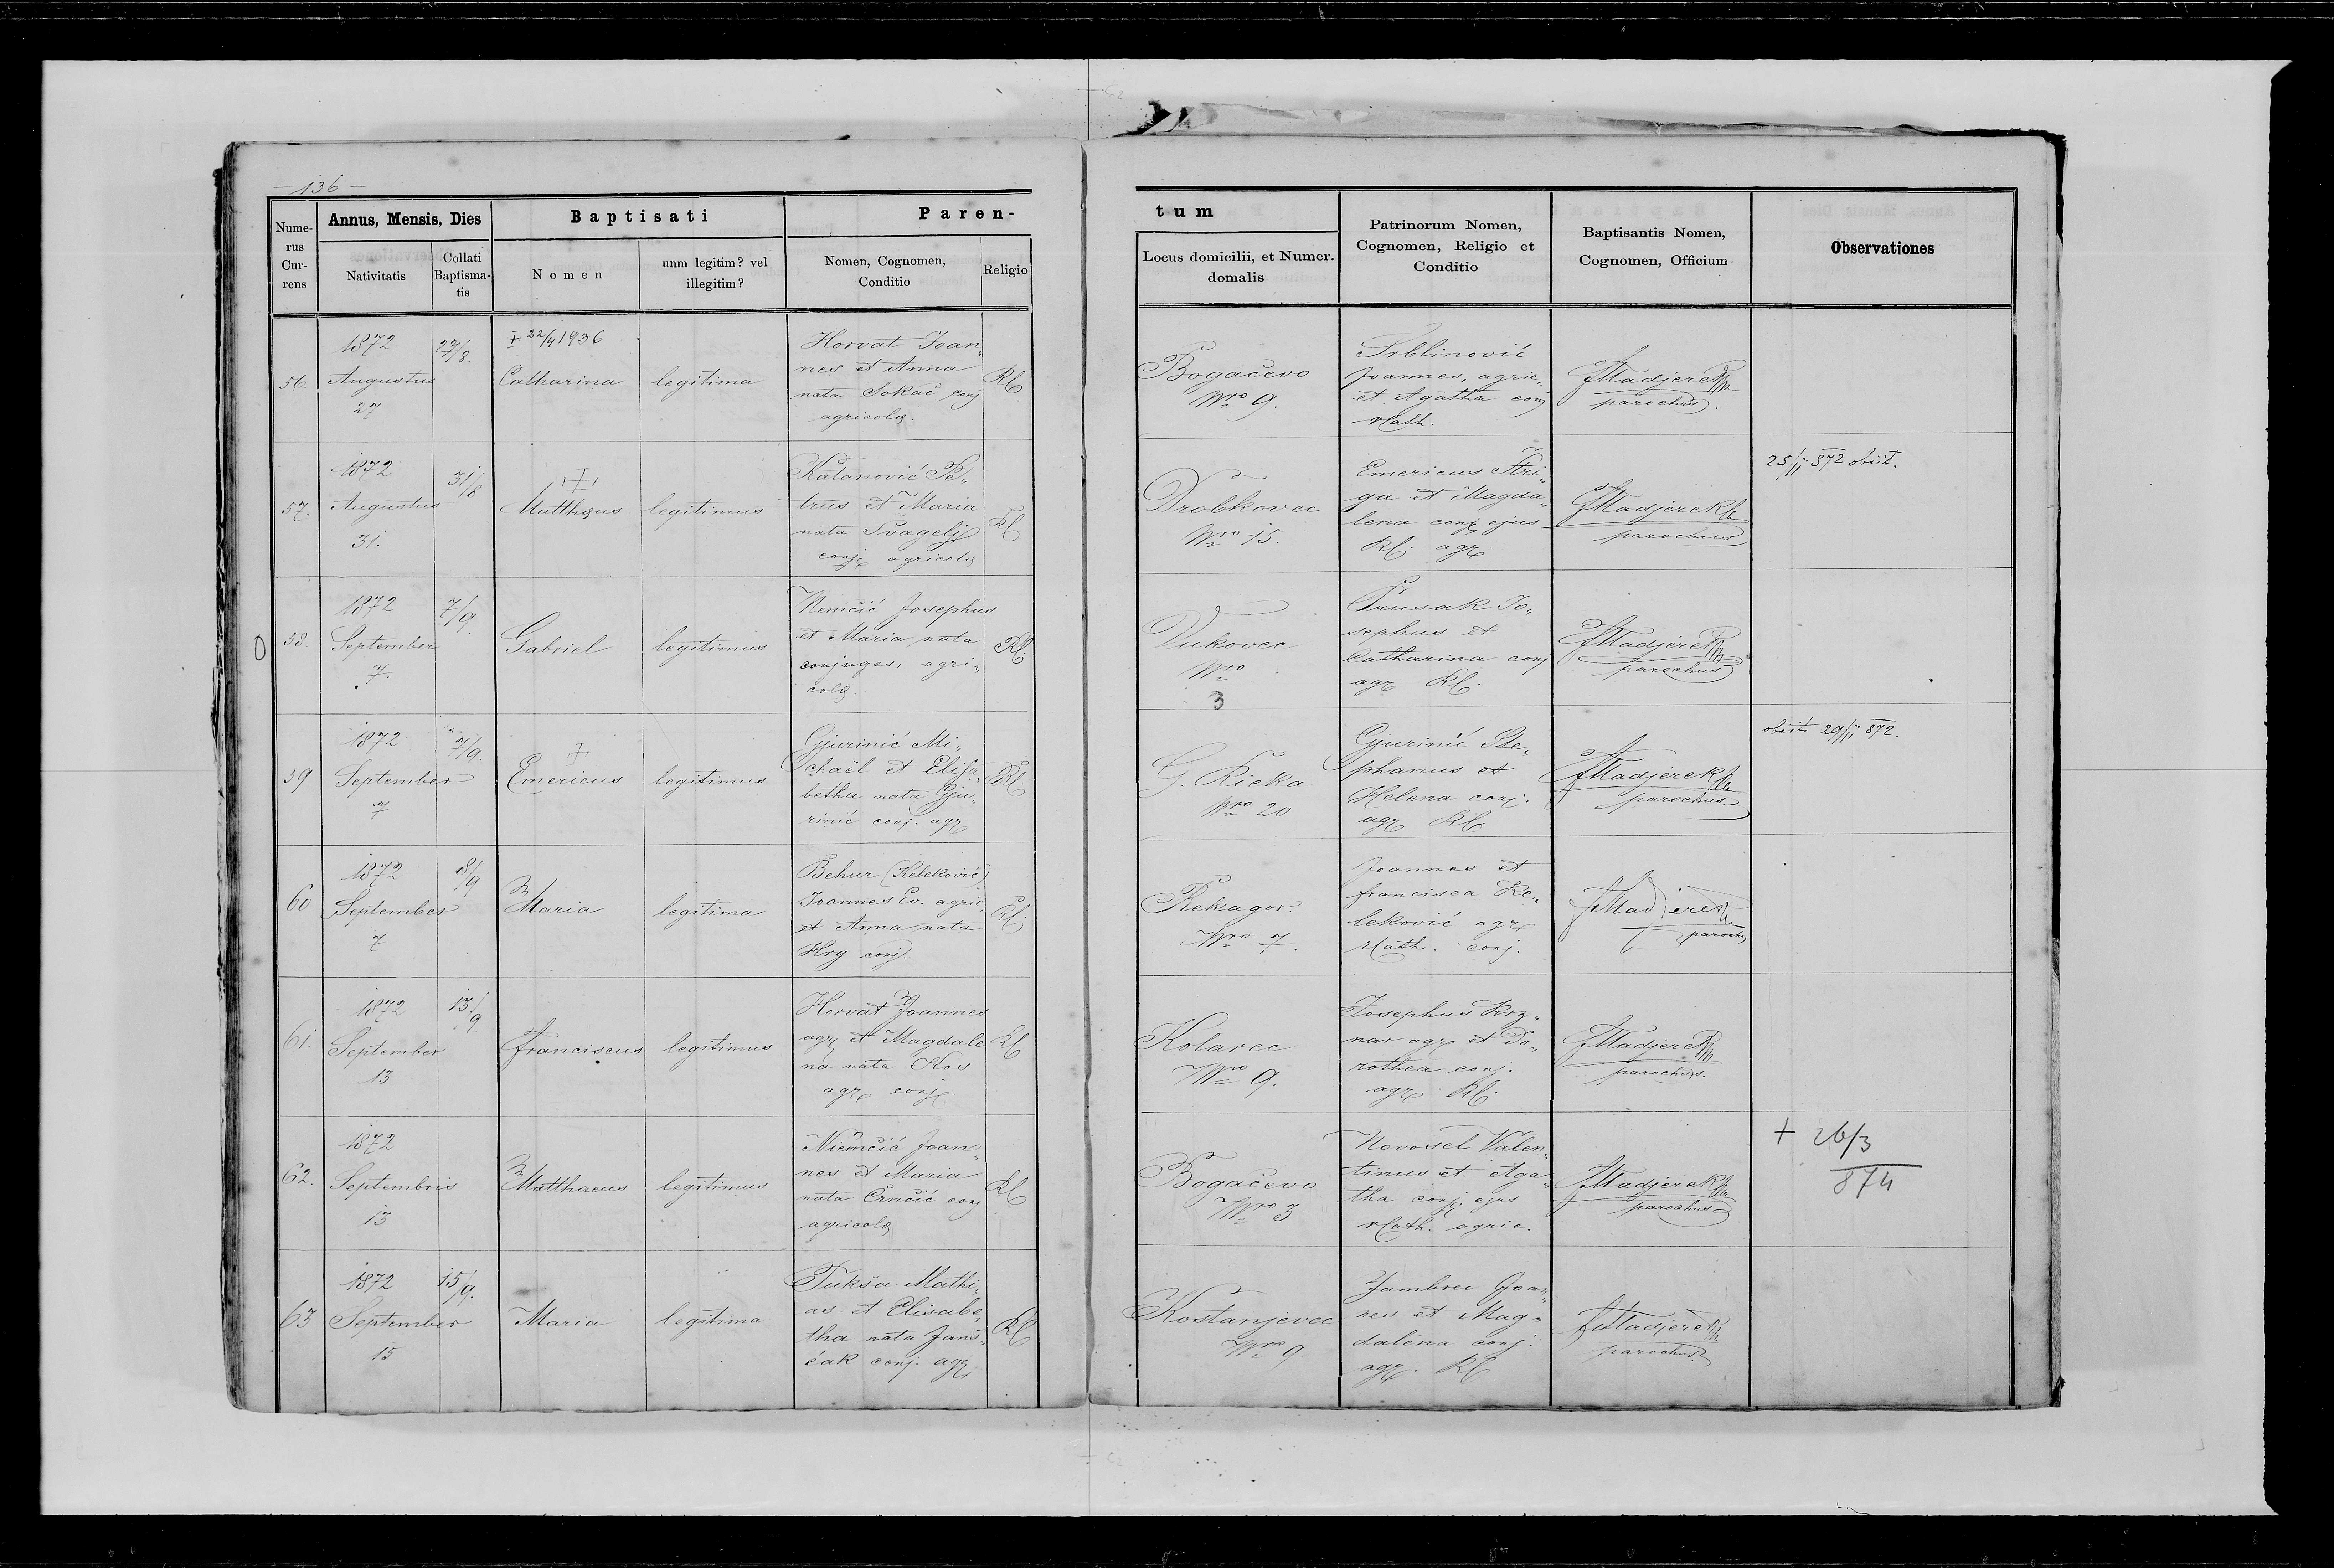 - 136 -
Nume-
rus
Cur-
rens
Annus, Mensis, Dies
Nativitatis
Collati
Baptisma-
tis
Baptisati
Nomen
unm legitim? vel
illegitim?
Paren-
Nomen, Cognomen,
Conditio
Religio
tum
Locus domicilii, et Numer.
domalis
Patrinorum Nomen,
Cognomen, Religio et
Conditio
Baptisantis Nomen,
Cognomen, Officium
Observationes
56.
1872
Augustus
27
27/8.
+ 22/4 1936
Catharina
legitima
Horvat Joan„
nes et Anna
nata Sokač conj
agricolæ.
RC
Bogačevo
Nro 9.
Srblinović
Joannes, agric„
et Agatha conj
rCath.
Madjerek
parochus.
57.
1872
Augustus
31.
31/8
Matthæus
legitimus
Katanović Pe„
trus et Maria
nata Švagelj
conj. agricolæ
RC
Drobkovec
Nro 15.
Emericus Štri„
ga et Magda„
lena conj. ejus
RC. agr.
Madjerek
parochus
25/11 872 obiit.
58.
1872
September
7.
7/9.
Gabriel
legitimus
Nemčić Josephus
et Maria nata
conjuges, agri„
colæ.
RC.
Vukovec
Nro
3
Prusak Jo„
sephus et
Catharina conj
agr. RC.
Madjerek
parochus
59
1872
September
7
7/9.
+
Emericus
legitimus
Gjurinić Mi„
chaël et Elisa„
betha nata Gju„
rinić conj. agr.
RC
G. Rieka
Nro 20
Gjurinić Ste„
phanus et
Helena conj.
agr. RC.
Madjerek
parochus
obiit 29/11 872.
60
1872
September
7
8/9
Maria
legitima
Behur (Keleković)
Joannes Ev. agric.
et Anna nata
Hrg conj.
RC.
Rekagor.
Nro 7.
Joannes et
Francisca Ke„
leković agr.
rCath. conj.
Madjerek
paroch
61.
1872
September
13
13/9
Franciscus
legitimus
Horvat Joannes
agr. et Magdale
na nata Kos
agr. conj.
RC
Kolarec
Nro 9.
Josephus Krz„
nar agr. et Do„
rothea conj.
agr. RC.
Madjerek
parochus.
62.
1872
Septembris
13
Matthaeus
legitimus
Niemčić Joan„
nes et Maria
nata Črnčić conj
agricolæ
RC
Bogačevo
Nro 3
Novosel Valen„
tinus et Aga„
tha conj. ejus
rCath. agric.
Madjerek
parochus
+ 26/3
874
63
1872
September
15
15/9.
Maria
legitima
Tukša Mathi„
as et Elisabe„
tha nata Janš„
čak conj. agr.
RC
Kostanjevec
Nro 9.
Jambrec Joan„
nes et Mag„
dalena conj.
agr. RC
Madjerek
parochus.